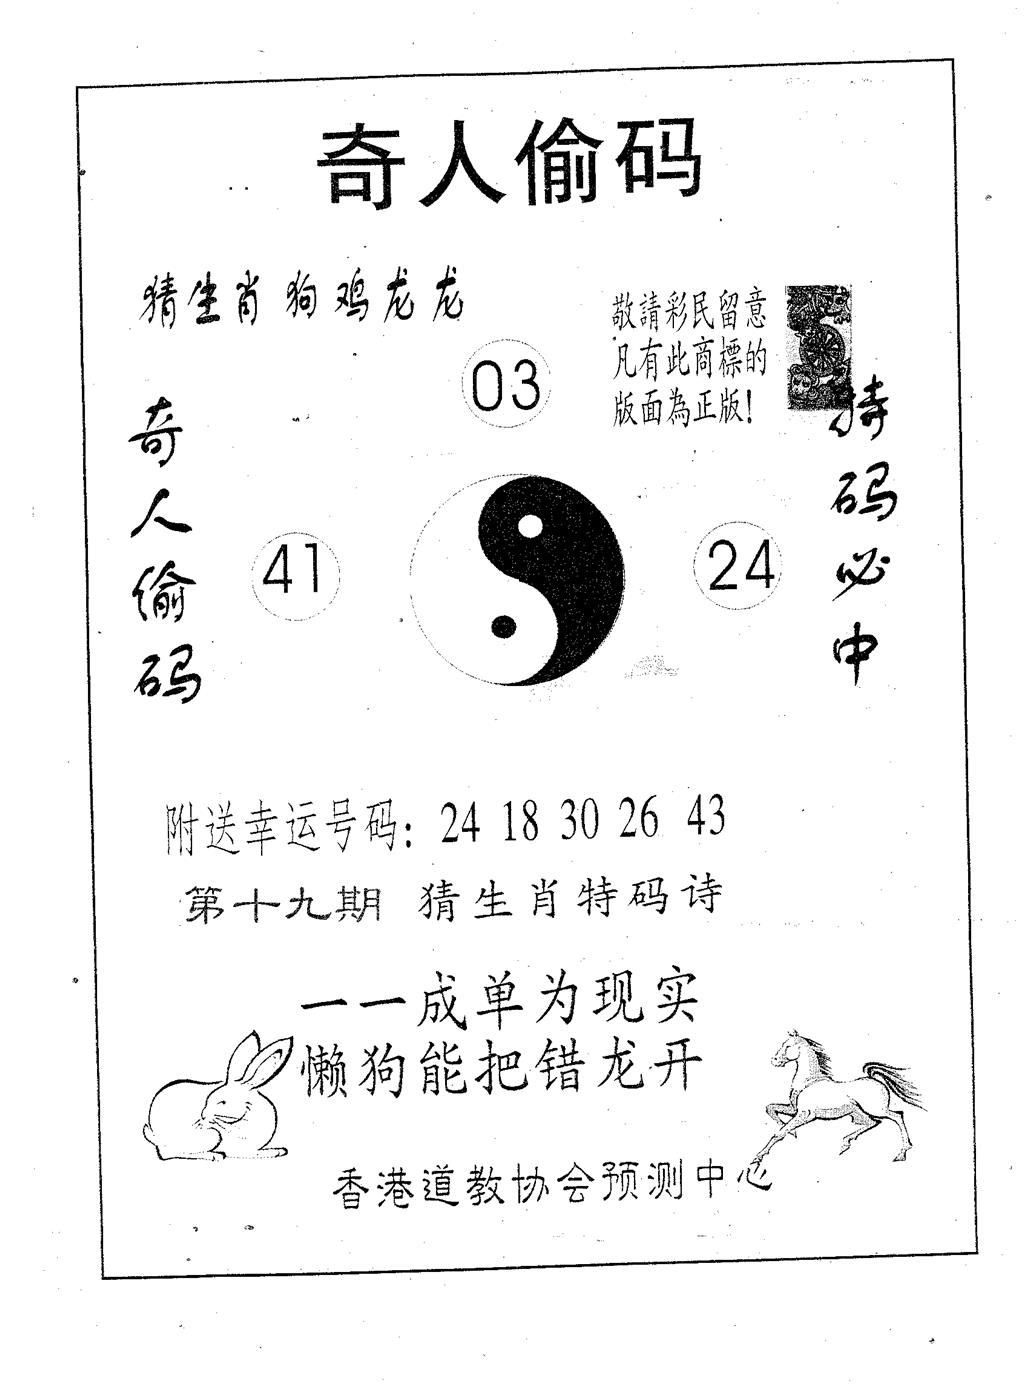 奇人偷码
猜生肖狗鸡龙龙
敬請彩民留意
凡有此商標的
版面為正版!
03
奇人偷码
41
24
特码必中
附送幸运号码: 24 18 30 26 43
第十九期 猜生肖特码诗
一一成单为现实
懒狗能把错龙开
香港道教协会预测中心